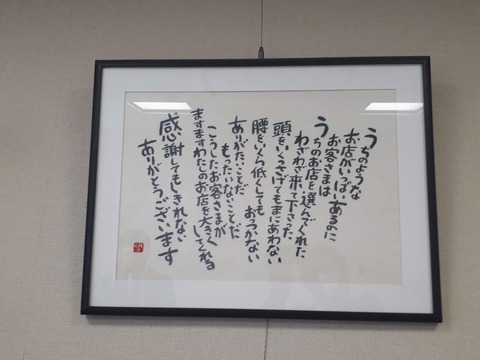 うちのような
お店がいっぱいあるのに
お客さまは
うちのお店を選んでくれた
わざわざ来て下さった
頭をいくらさげてもまにあわない
腰をいくら低くしてもおっつかない
ありがたいことだ
もったいないことだ
こうしたお客さまが
ますますわたしのお店を大きくしてくれる
感謝してもしきれない
ありがとうございます